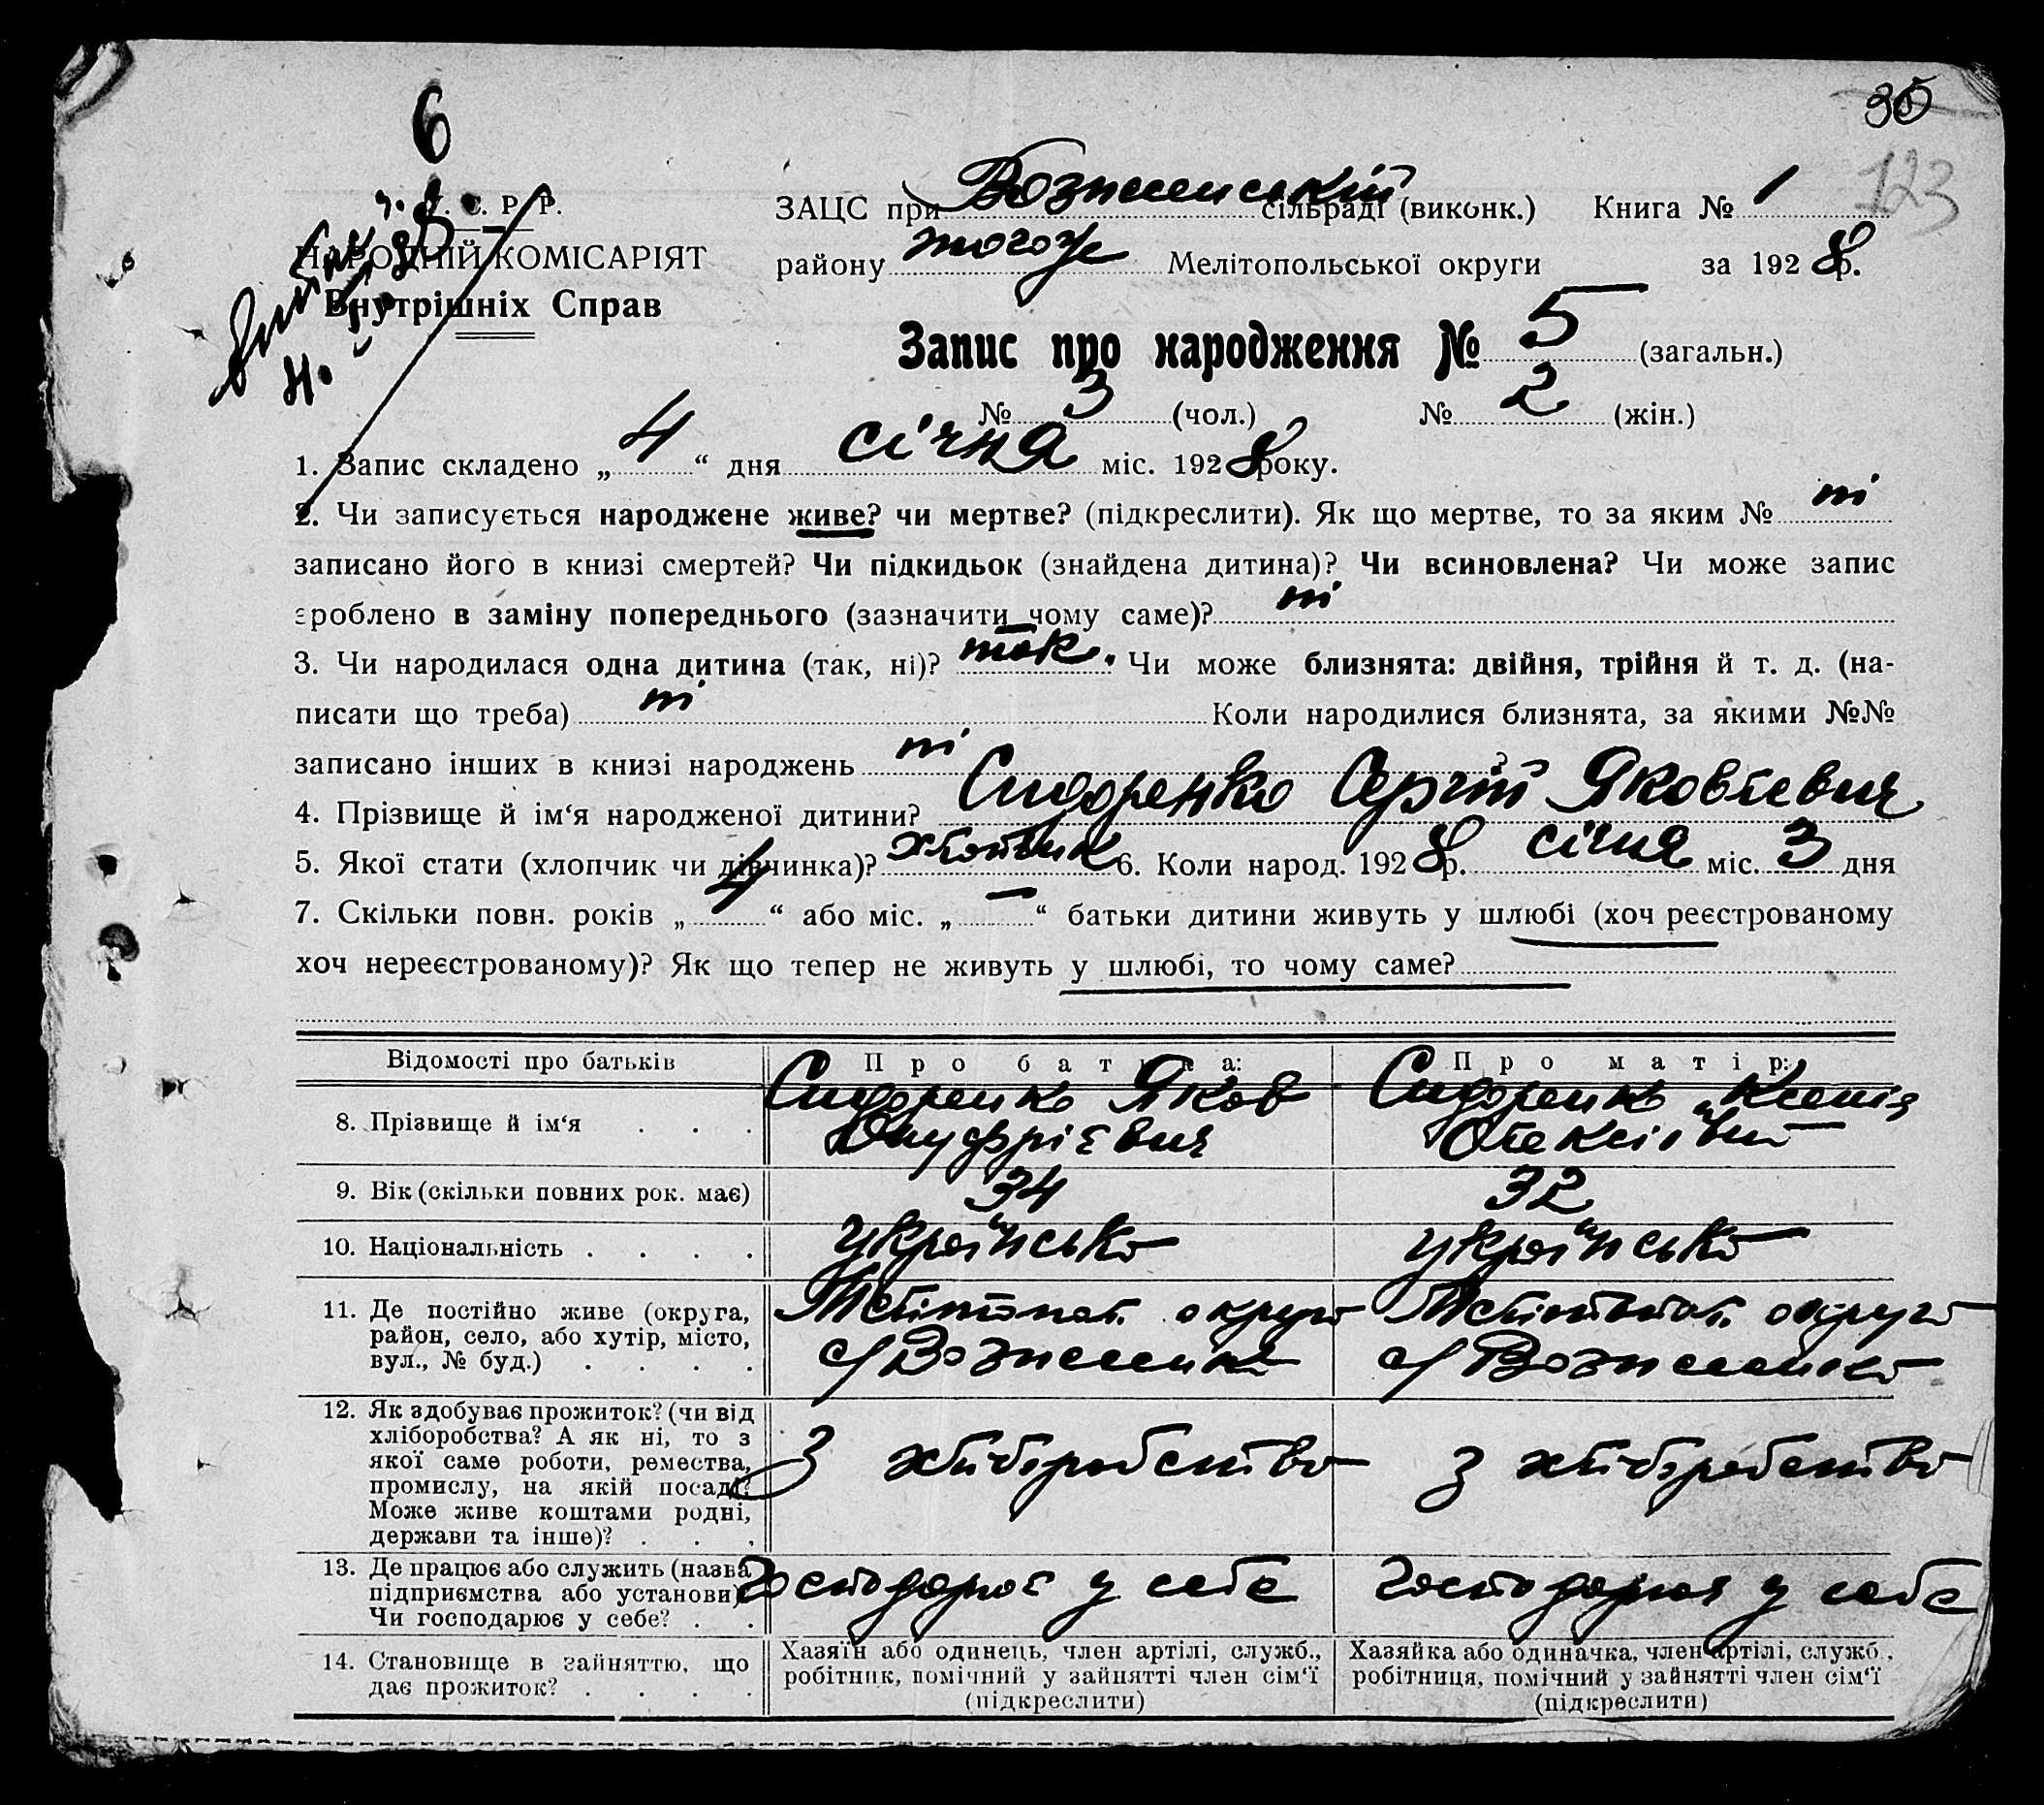 6
35
123
У. С. Р. Р.
НАРОДНІЙ КОМІСАРІЯТ
Внутрішніх Справ
ЗАЦС при Вознесенській сільраді (виконк.) Книга № 1
району тогоже Мелітопольської округи за 1928 р.
Запис про народження № 5 (загальн.)
№ 3 (чол.) № 2 (жін.)
1. Запис складено „ 4 “ дня січня міс. 1928 року.
2. Чи записується народжене живе? чи мертве? (підкреслити). Як що мертве, то за яким № ні
записано його в книзі смертей? Чи підкидьок (знайдена дитина)? Чи всиновлена? Чи може запис
зроблено в заміну попереднього (зазначити чому саме)? ні
3. Чи народилася одна дитина (так, ні)? так. Чи може близнята: двійня, трійня й т. д. (на-
писати що треба) ні Коли народилися близнята, за якими №№
записано інших в книзі народжень ні
4. Прізвище й ім‘я народженої дитини? Сидоренко Сергій Яковлевич
5. Якої стати (хлопчик чи дівчинка)? хлопчик 6. Коли народ. 1928 р. січня міс. 3 дня
7. Скільки повн. років „ 4 “ або міс. „ — “ батьки дитини живуть у шлюбі (хоч реєстрованому
хоч нереєстрованому)? Як що тепер не живуть у шлюбі, то чому саме?
Відомості про батьків Про батька: Про матір:
8. Прізвище й ім‘я . . . Сидоренко Яков Онуфрієвич Сидоренко Ксенія Олексіївна
9. Вік (скільки повних рок. має) 34 32
10. Національність . . . . українсько українсько
11. Де постійно живе (округа,
район, село, або хутір, місто,
вул., № буд.) . . . .
Мелітопол. округи
с/Вознесенка
Мелітопол. округи
с/Вознесенка
12. Як здобуває прожиток? (чи від
хліборобства? А як ні, то з
якої саме роботи, ремества,
промислу, на якій посаді?
Може живе коштами родні,
держави та інше)? . . .
З хліборобство
з хліборобство
13. Де працює або служить (назва
підприємства або установи)
Чи господарює у себе? . .
господарює у себе
господарює у себе
14. Становище в зайняттю, що
дає прожиток? . . . .
Хазяїн або одинець, член артілі, служб.,
робітник, помічний у зайнятті член сім‘ї
(підкреслити)
Хазяйка або одиначка, член артілі, служб.,
робітниця, помічний у зайнятті член сім‘ї
(підкреслити)